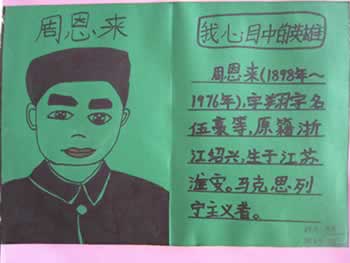 周恩来
我心目中的英雄
周恩来(1898年～
1976年),字翔宇名
伍豪等,原籍浙
江绍兴,生于江苏
淮安。马克思列
宁主义者。